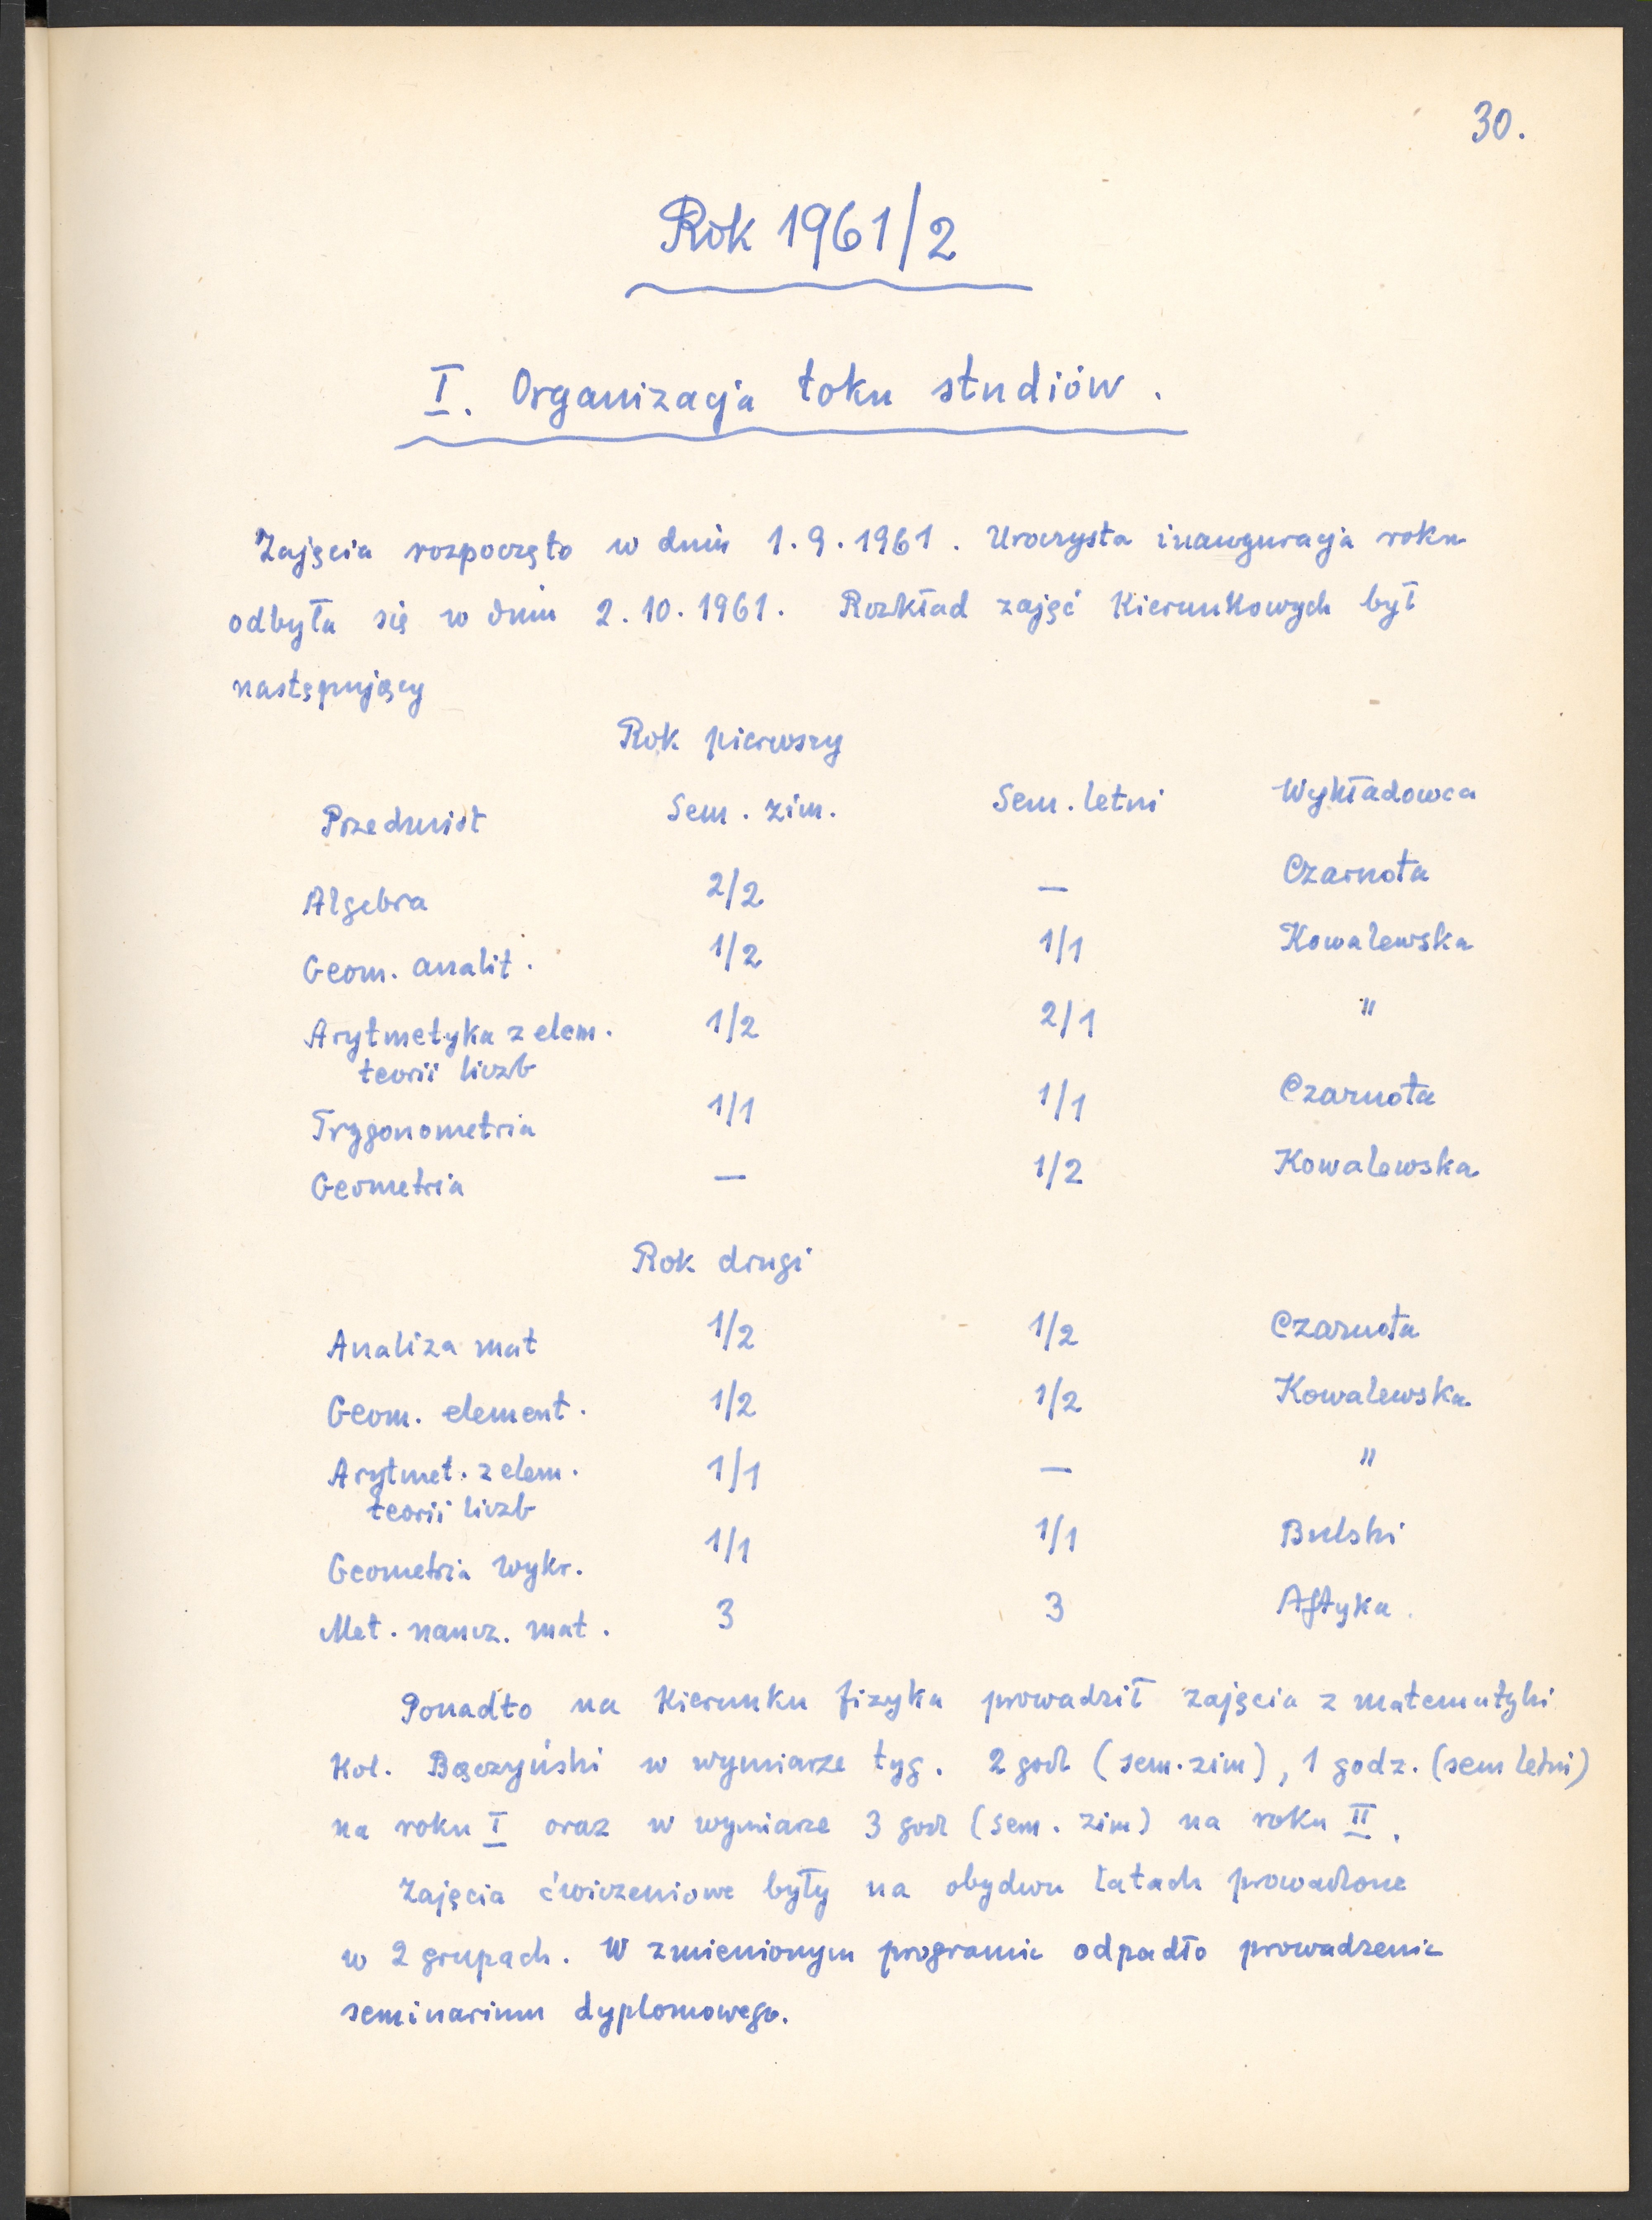 30.
Rok 1961/2
I. Organizacja toku studiów.
Zajęcia rozpoczęto w dniu 1.9.1961. Uroczysta inauguracja roku
odbyła się w dniu 2.10.1961. Rozkład zajęć kierunkowych był
następujący
Rok pierwszy
Przedmiot Sem. zim. Sem. letni Wykładowca
Algebra 2/2 — Czarnota
Geom. analit. 1/2 1/1 Kowalewska
Arytmetyka z elem. 1/2 2/1 "
teorii liczb
Trygonometria 1/1 1/1 Czarnota
Geometria — 1/2 Kowalewska
Rok drugi
Analiza mat 1/2 1/2 Czarnota
Geom. element. 1/2 1/2 Kowalewska
Arytmet. z elem. 1/1 — "
teorii liczb
Geometria wykr. 1/1 1/1 Bulski
Met. naucz. mat. 3 3 Aftyka.
Ponadto na kierunku fizyka prowadził zajęcia z matematyki
Kol. Bączyński w wymiarze tyg. 2 godz (sem. zim), 1 godz. (sem letni)
na roku I oraz w wymiarze 3 godz (sem. zim) na roku II.
Zajęcia ćwiczeniowe były na obydwu latach prowadzone
w 2 grupach. W zmienionym programie odpadło prowadzenie
seminarium dyplomowego.